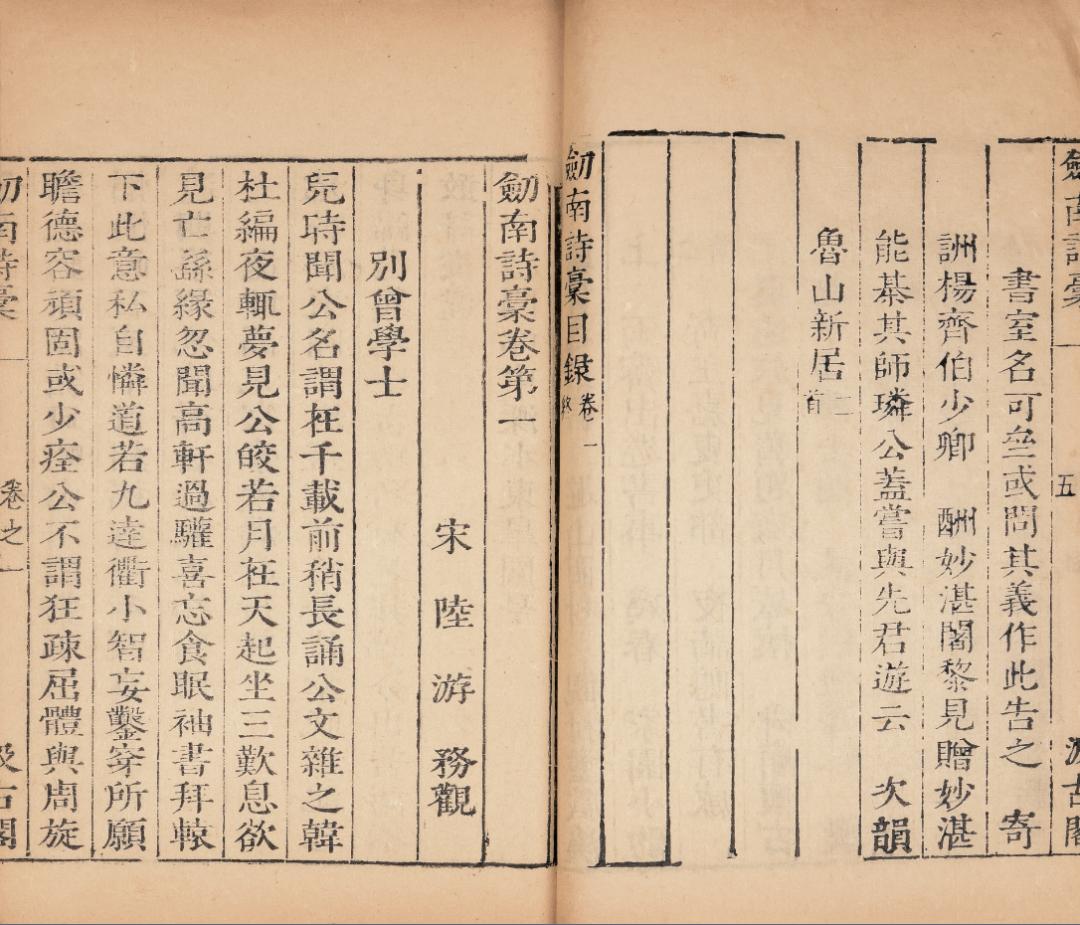 劒南詩稾 五 汲古閣
書室名可壘或問其義作此告之 寄
詶楊齊伯少卿 酬妙湛闍黎見贈妙湛
能棊其師璘公蓋嘗與先君遊云 次韻
魯山新居二首
劒南詩稾目録卷一
劒南詩稾卷第一
宋 陸 游 務觀
別曾學士
兒時聞公名謂在千載前稍長誦公文雜之韓
杜編夜輒夢見公皎若月在天起坐三歎息欲
見亡繇緣忽聞高軒過驩喜忘食眠袖書拜轅
下此意私自憐道若九逵衢小智妄鑿穿所願
瞻德容頑固或少痊公不謂狂疎屈體與周旋
劒南詩稾 卷之一 汲古閣